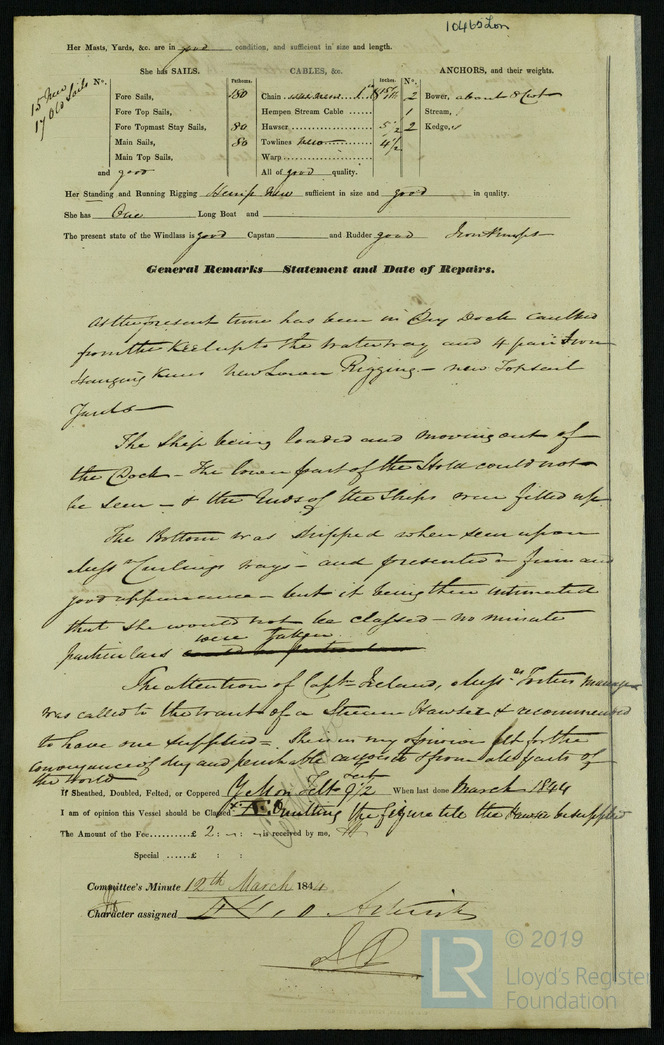 10465 Lon
Her Masts, Yards, &c. are in good condition, and sufficient in size and length.
She has SAILS. CABLES, &c. ANCHORS, and their weights.
15 New
17 Old Sails
N°. Fathoms. Inches. N°.
Fore Sails, 180 Chain 2 Bower, about 8 Cwt
Fore Top Sails, Hempen Stream Cable 1 Stream,
Fore Topmast Stay Sails, 80 Hawser 5 1/2 2 Kedge,
Main Sails, 80 Towlines New 4 1/2
Main Top Sails, Warp
and good All of good quality.
Her Standing and Running Rigging Hemp New sufficient in size and good in quality.
She has One Long Boat and
The present state of the Windlass is good Capstan and Rudder good Iron Pumps
General Remarks Statement and Date of Repairs.
At the present time has been in Dry Dock caulked
from the Keel up to the Waterway and 4 pair Iron
Hanging Knees New Lower Rigging - new Topsail
Yards
The Ship being loaded and moving out of
the Dock - The lower part of the Hold could not
be seen - & the Ends of the Ships were fitted up
The Bottom was stripped when seen upon
Messrs Curlings ways - and presented a firm and
good appearance - but it being then intimated
that she would not be classed - no minute
were taken
particulars
The attention of Captn Ireland, Messrs Manager
was called to the want of a Stream Hawser & recommended
to have one supplied = She is in my opinion fit for the
conveyance of dry and perishable cargoes to & from all parts of
the World
If Sheathed, Doubled, Felted, or Coppered Y Mm Felt 9 1/2 feet When last done March 1844
I am of opinion this Vessel should be Classed Omitting the figure till the Hawser be supplied
The Amount of the Fee......£ 2 : - : - is received by me,
Special ......£ : :
Committee's Minute 12th March 1844
Character assigned
LR
© 2019
Lloyd's Register
Foundation